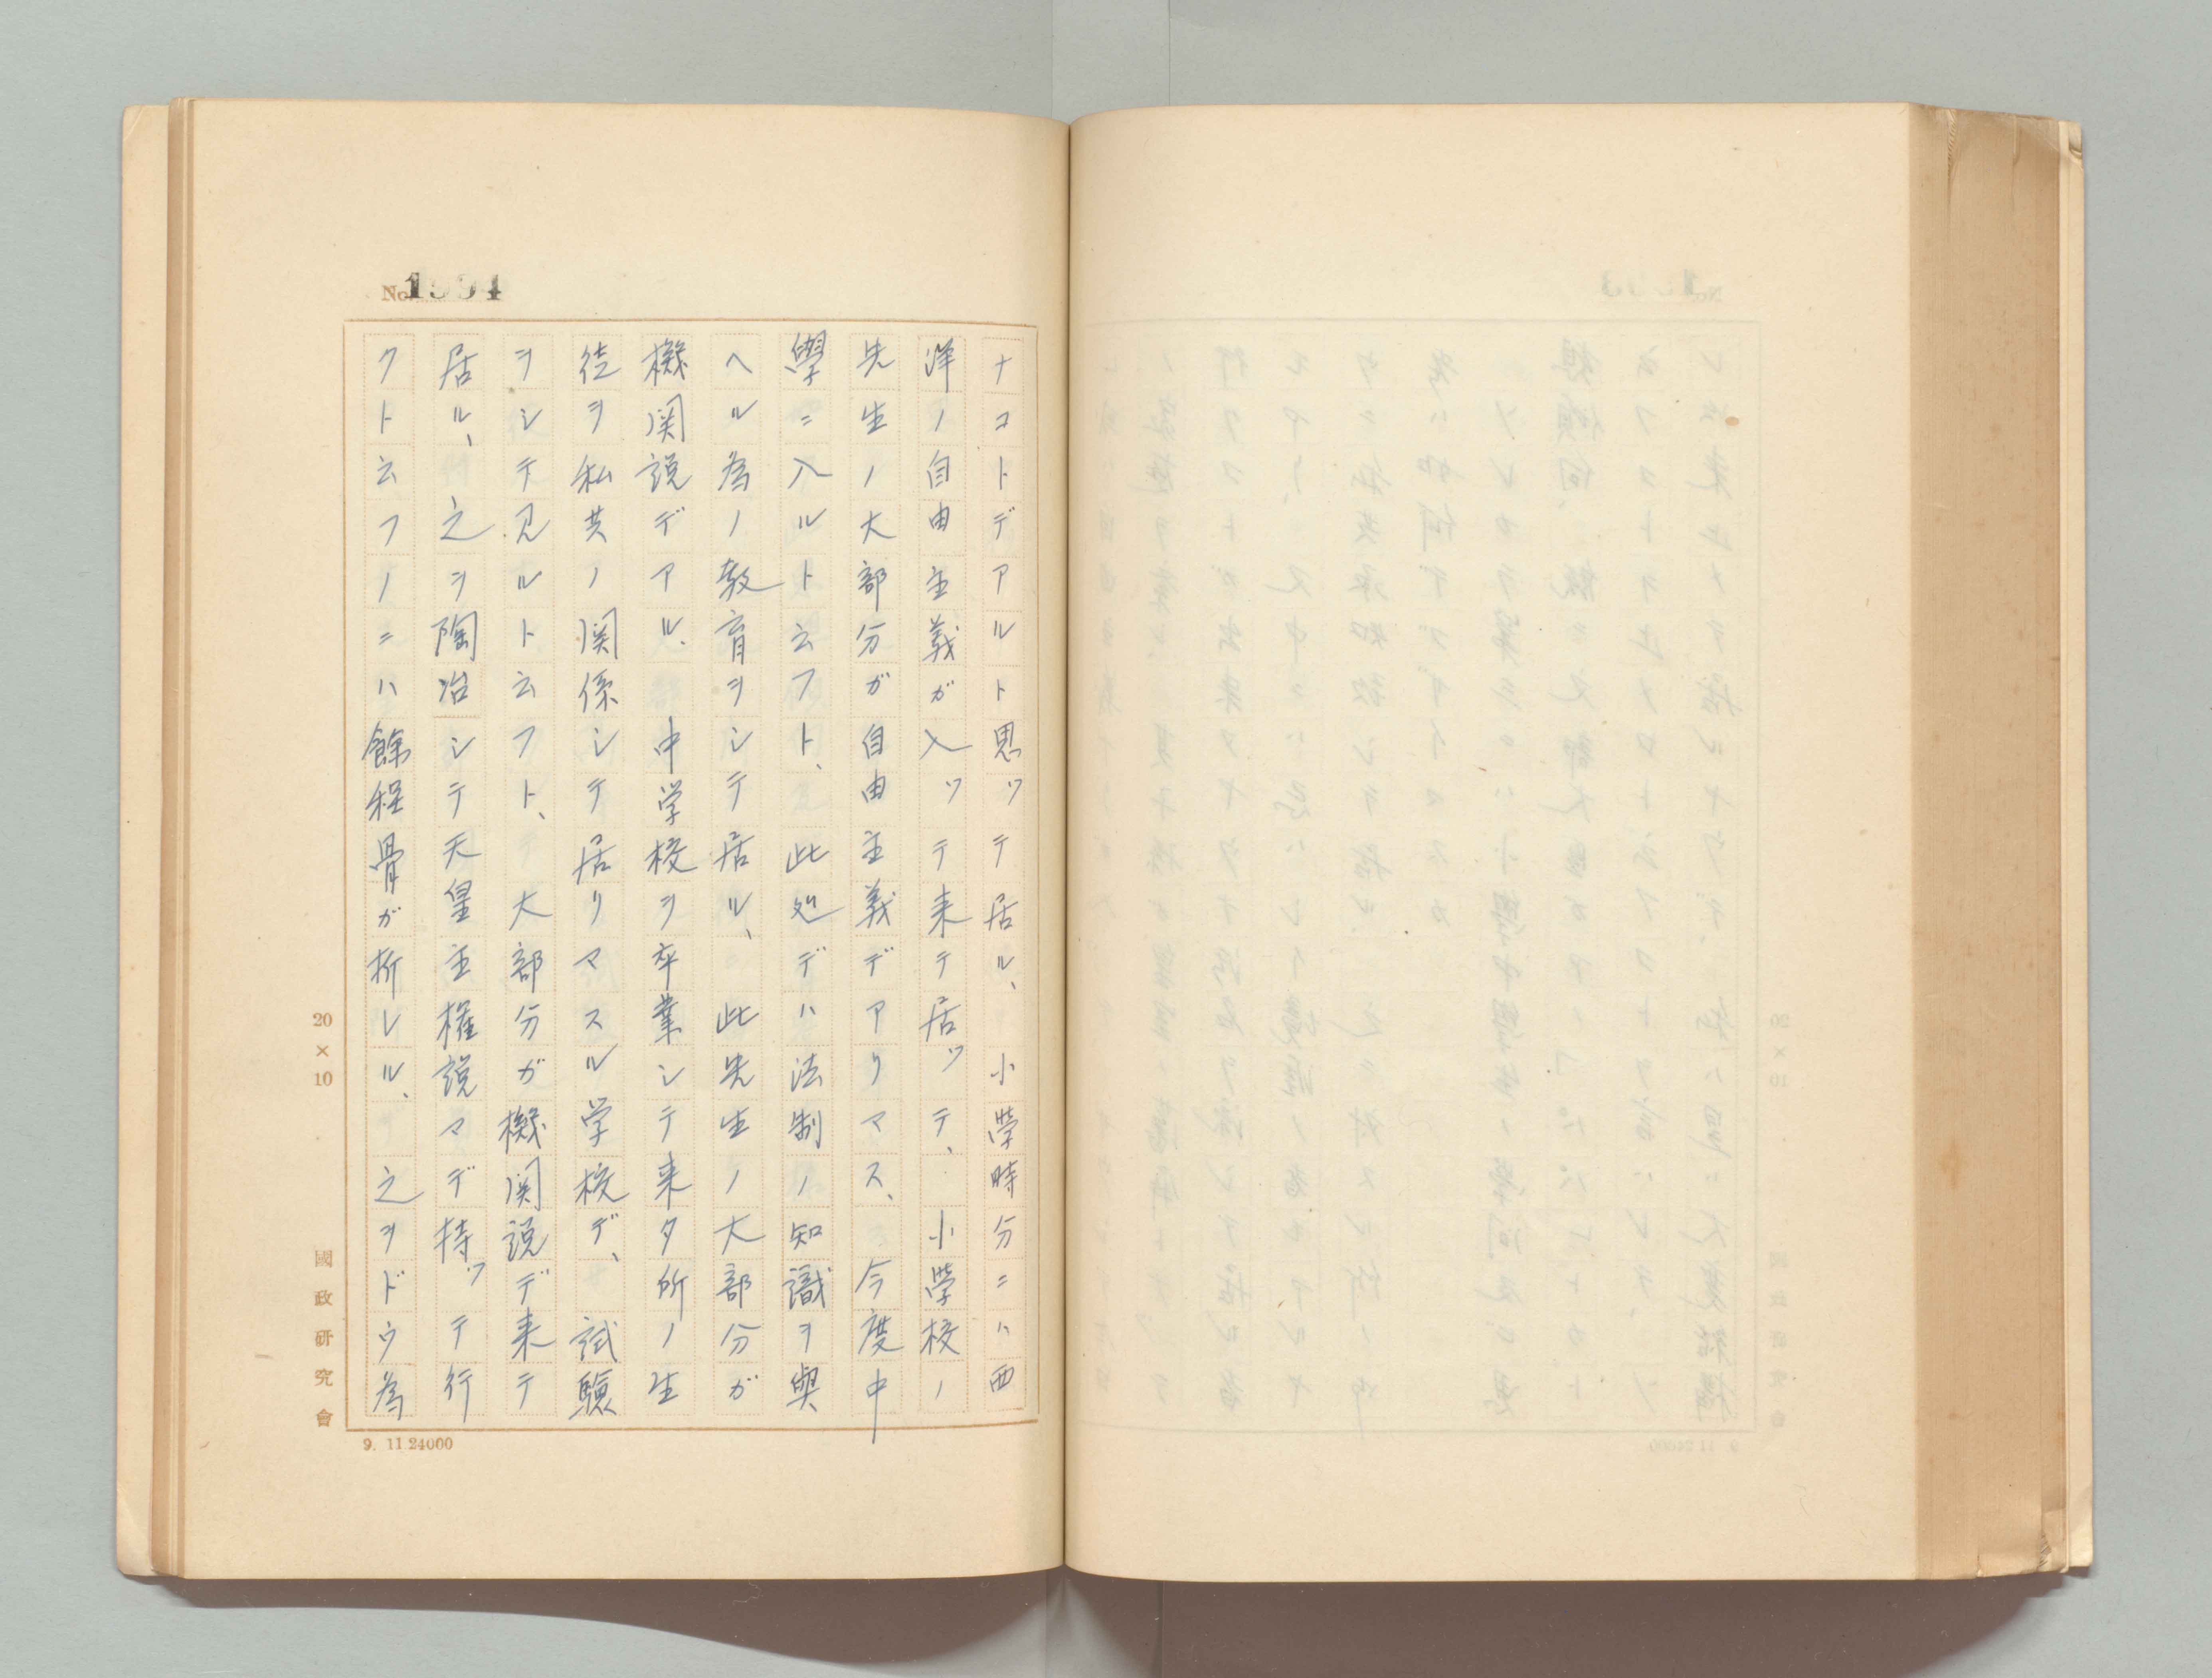 No. 1994
ナコトデアルト思ツテ居ル、 小學時分ニハ西
洋ノ自由主義ガ入ツテ来テ居ツテ、 小學校ノ
先生ノ大部分ガ自由主義デアリマス、 今度中
學ニ入ルト云フト、 此処デハ法制ノ知識ヲ與
ヘル為ノ教育ヲシテ居ル、 此先生ノ大部分ガ
機関説デアル、 中学校ヲ卒業シテ来タ所ノ生
徒ヲ私共ノ関係シテ居リマスル学校デ、 試験
ヲシテ見ルト云フト、 大部分ガ機関説デ来テ
居ル、 之ヲ陶冶シテ天皇主権説マデ持ツテ行
クト云フノニハ餘程骨ガ折レル、 之ヲドウ為
20×10
國政研究會
9. 11.24000